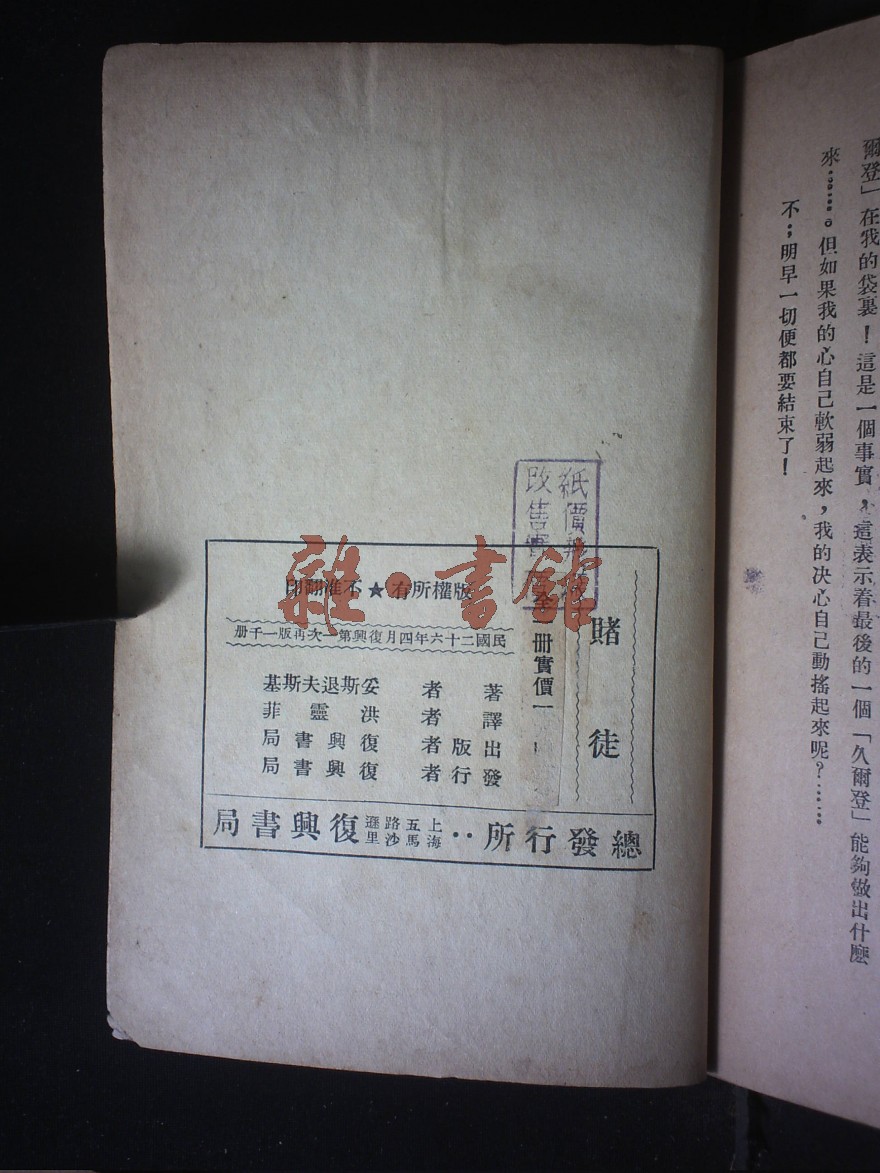 爾登」在我的袋裏！這是一個事實，這表示着最後的一個「久爾登」能夠做出什麽
來……。但如果我的心自己軟弱起來，我的决心自己動搖起來呢？……
不；明早一切便都要結束了！
紙價
改售實
賭徒
全一册實價一
版權所有★不准翻印
民國二十六年四月復興第一次再版一千册
著者 妥斯退夫斯基
譯者 洪靈菲
出版者 復興書局
發行者 復興書局
總發行所：上海五馬路沙遜里復興書局
雜·書館